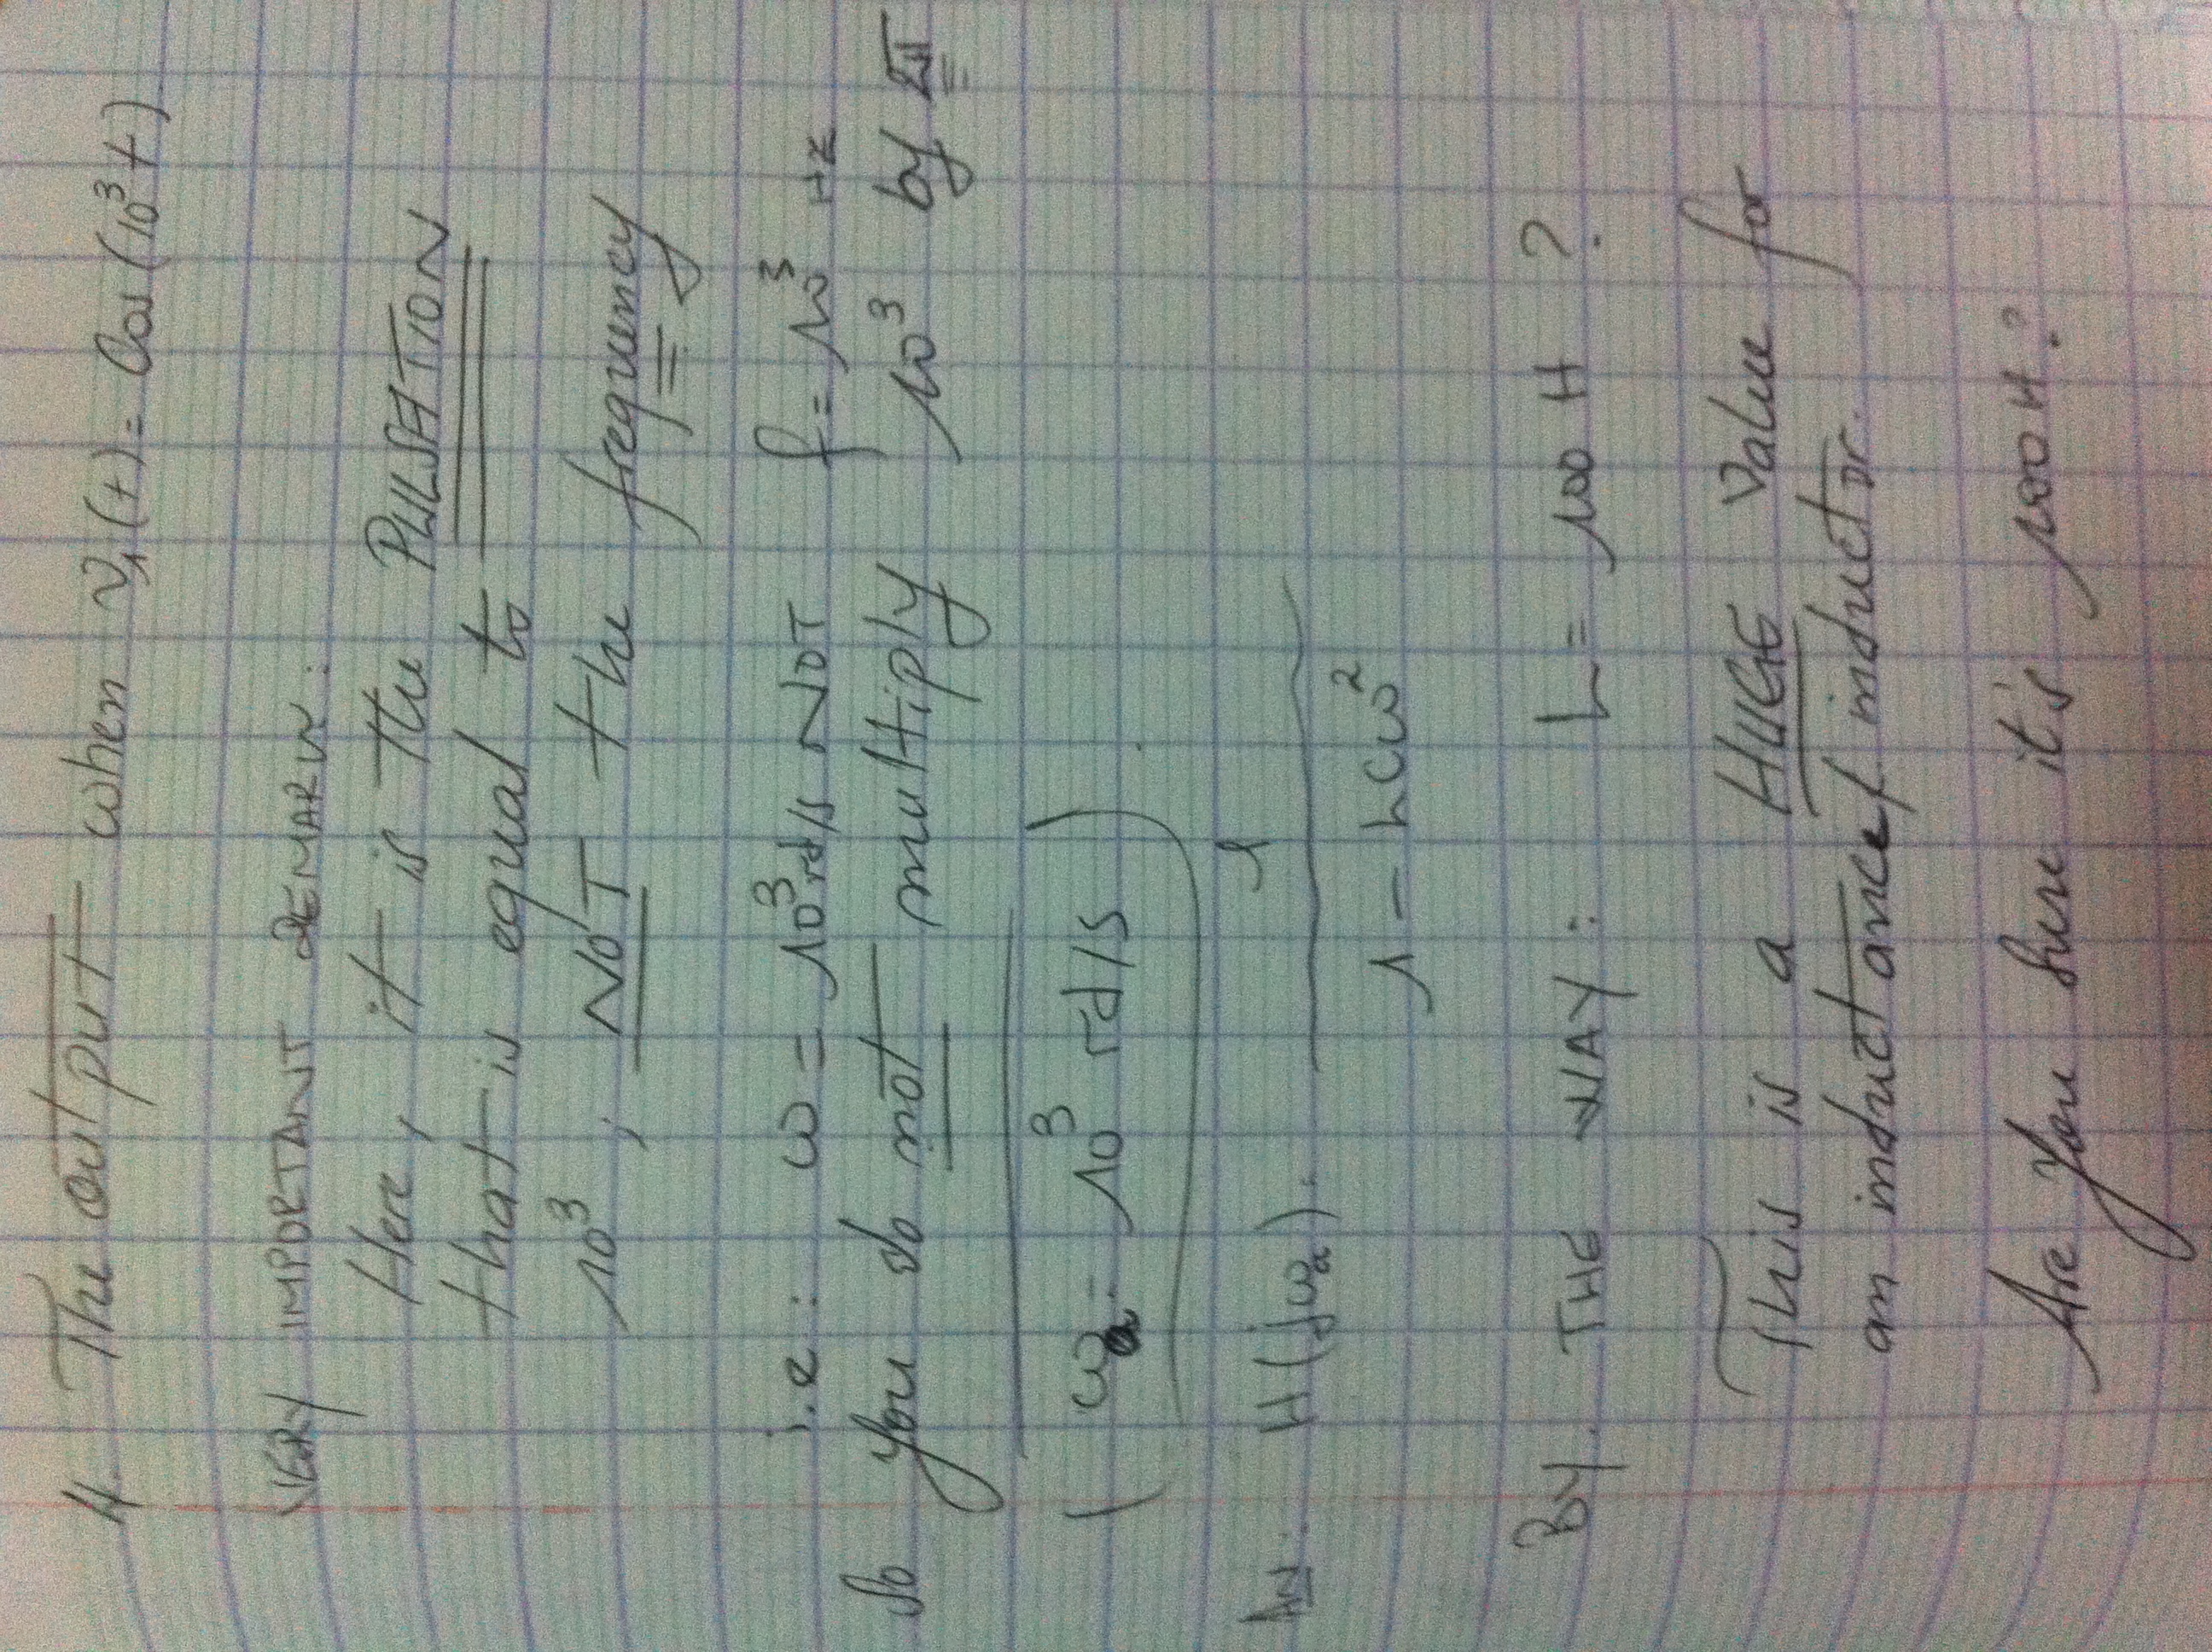 4. The output when v₁(t) = Cos(10³t)
VERY IMPORTANT REMARK:
Here, it is the PULSATION
that is equal to
10³, NOT the frequency
i.e: ω = 10³ rd/s NOT f = 10³ Hz
So you do not multiply 10³ by 2π
(ωa = 10³ rd/s).
AN: H(jωa) = 1 / (1 - LCω²)
BY THE WAY: L = 100 H ?
This is a HUGE Value for
an inductance/inductor.
Are you sure it's 100H?